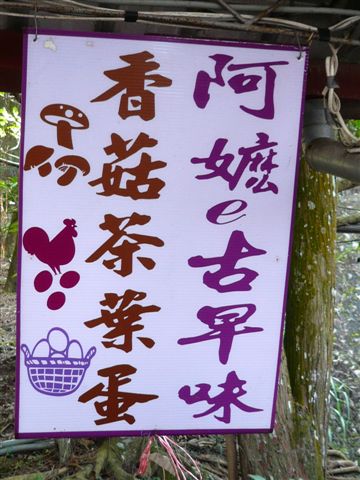 阿嬤e古早味
香菇茶葉蛋